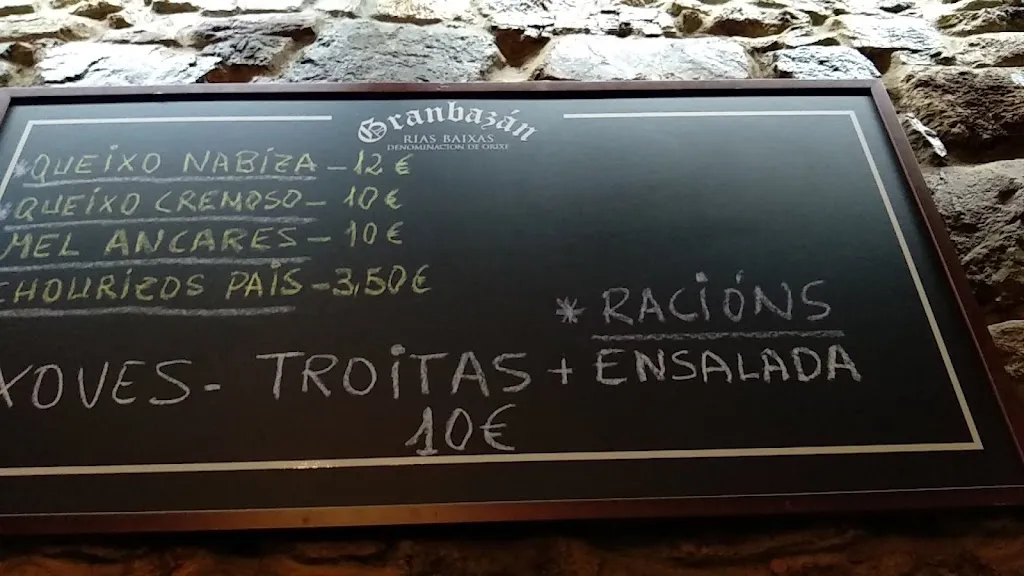 Granbazán
RIAS BAIXAS
DENOMINACION DE ORIXE
*QUEIXO NABIZA - 12 €
*QUEIXO CREMOSO - 10€
MEL ANCARES - 10€
CHOURIZOS PAIS - 3,50€
* RACIÓNS
XOVES - TROITAS + ENSALADA
10€